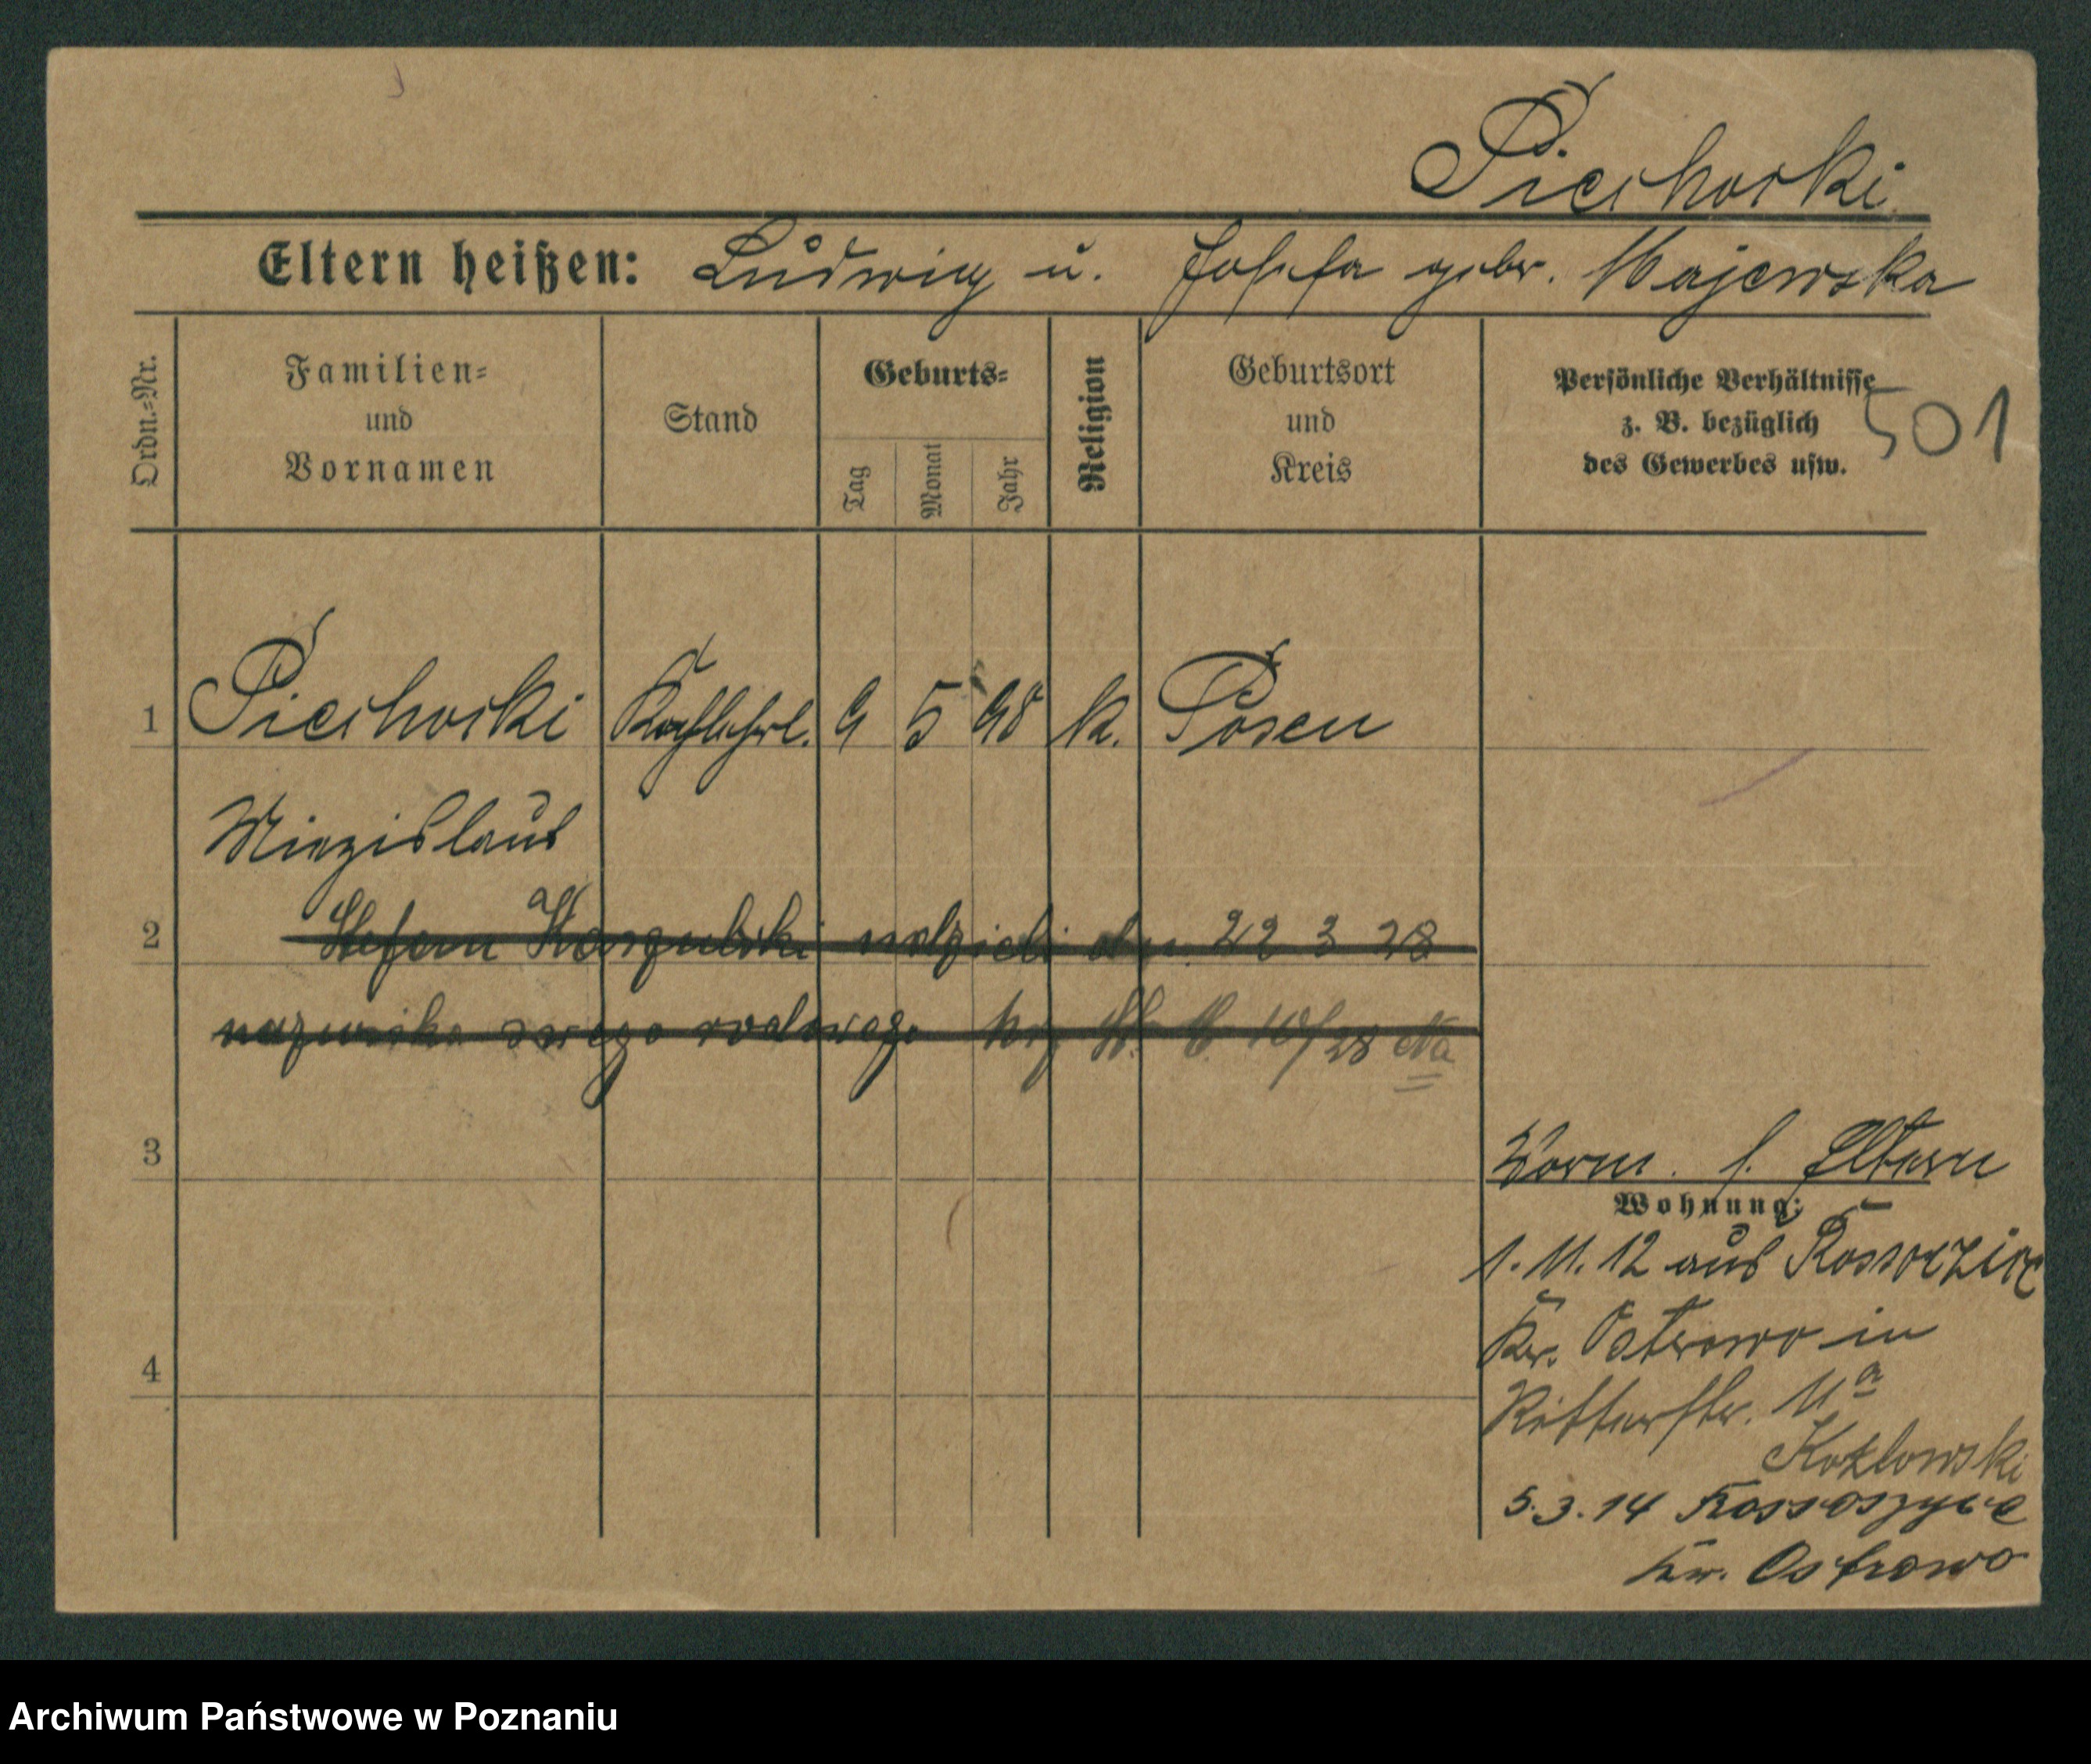 Piechocki
Eltern heißen: Ludwig u. Josefa gebr. Majewska
Ordn.=Nr.
Familien=
und
Vornamen
Stand
Geburts=
Tag
Monat
Jahr
Religion
Geburtsort
und
Kreis
Persönliche Verhältnisse
z. B. bezüglich
des Gewerbes usw.
501
1 Piechocki Kochlehrl. 9 5 98 k. Posen
Miezislaus
2 Stefan udzielił dn. 22 3 28
nazwiska swego rodowego 10/28
3
Vorm. s. Eltern
Wohnung:
1.11.12 aus
4
Kr. Ostrowo in
Ritterstr. 11a
Kozlowski
5.3.14 Kossoszyce
Kr. Ostrowo
Archiwum Państwowe w Poznaniu